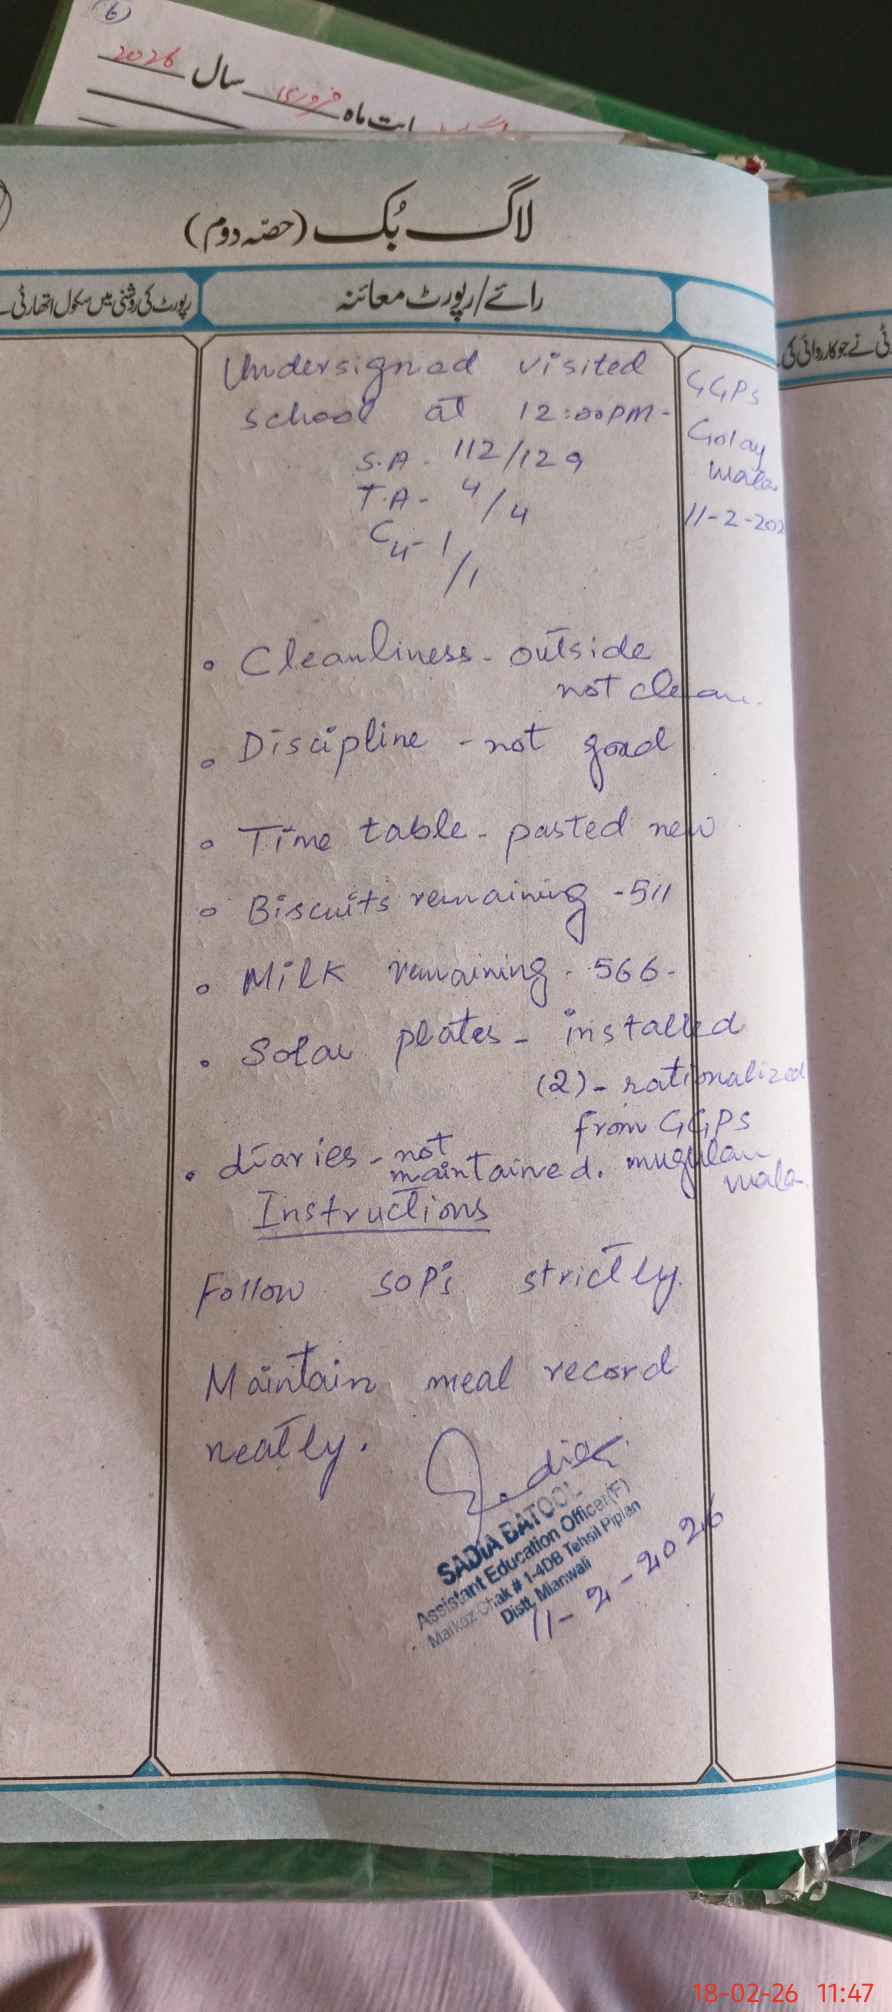 6
سال 2026
ماہ فروری
لاگ بُک (حصّہ دوم)
رائے/رپورٹ معائنہ
رپورٹ کی روشنی میں سکول اتھارٹی
ٹی نے جو کاروائی کی
GGPS
Golay
wala
11-2-202
Undersigned visited
school at 12:00PM-
S.A - 112/129
T.A- 4/4
C4- 1/1
• Cleanliness - outside
not clean.
• Discipline - not good
• Time table - pasted new
• Biscuits remaining - 511
• Milk remaining - 566-
• Solar plates - installed
(2) - rationalized
from GGPS
mugulan
wala.
• diaries - not
maintained.
Instructions
Follow SOP's strictly.
Maintain meal record
neatly.
SADIA BATOOL
Assistant Education Officer (F)
Markaz Chak # 1-4DB Tehsil Piplan
Distt. Mianwali
11-2-2026
18-02-26 11:47